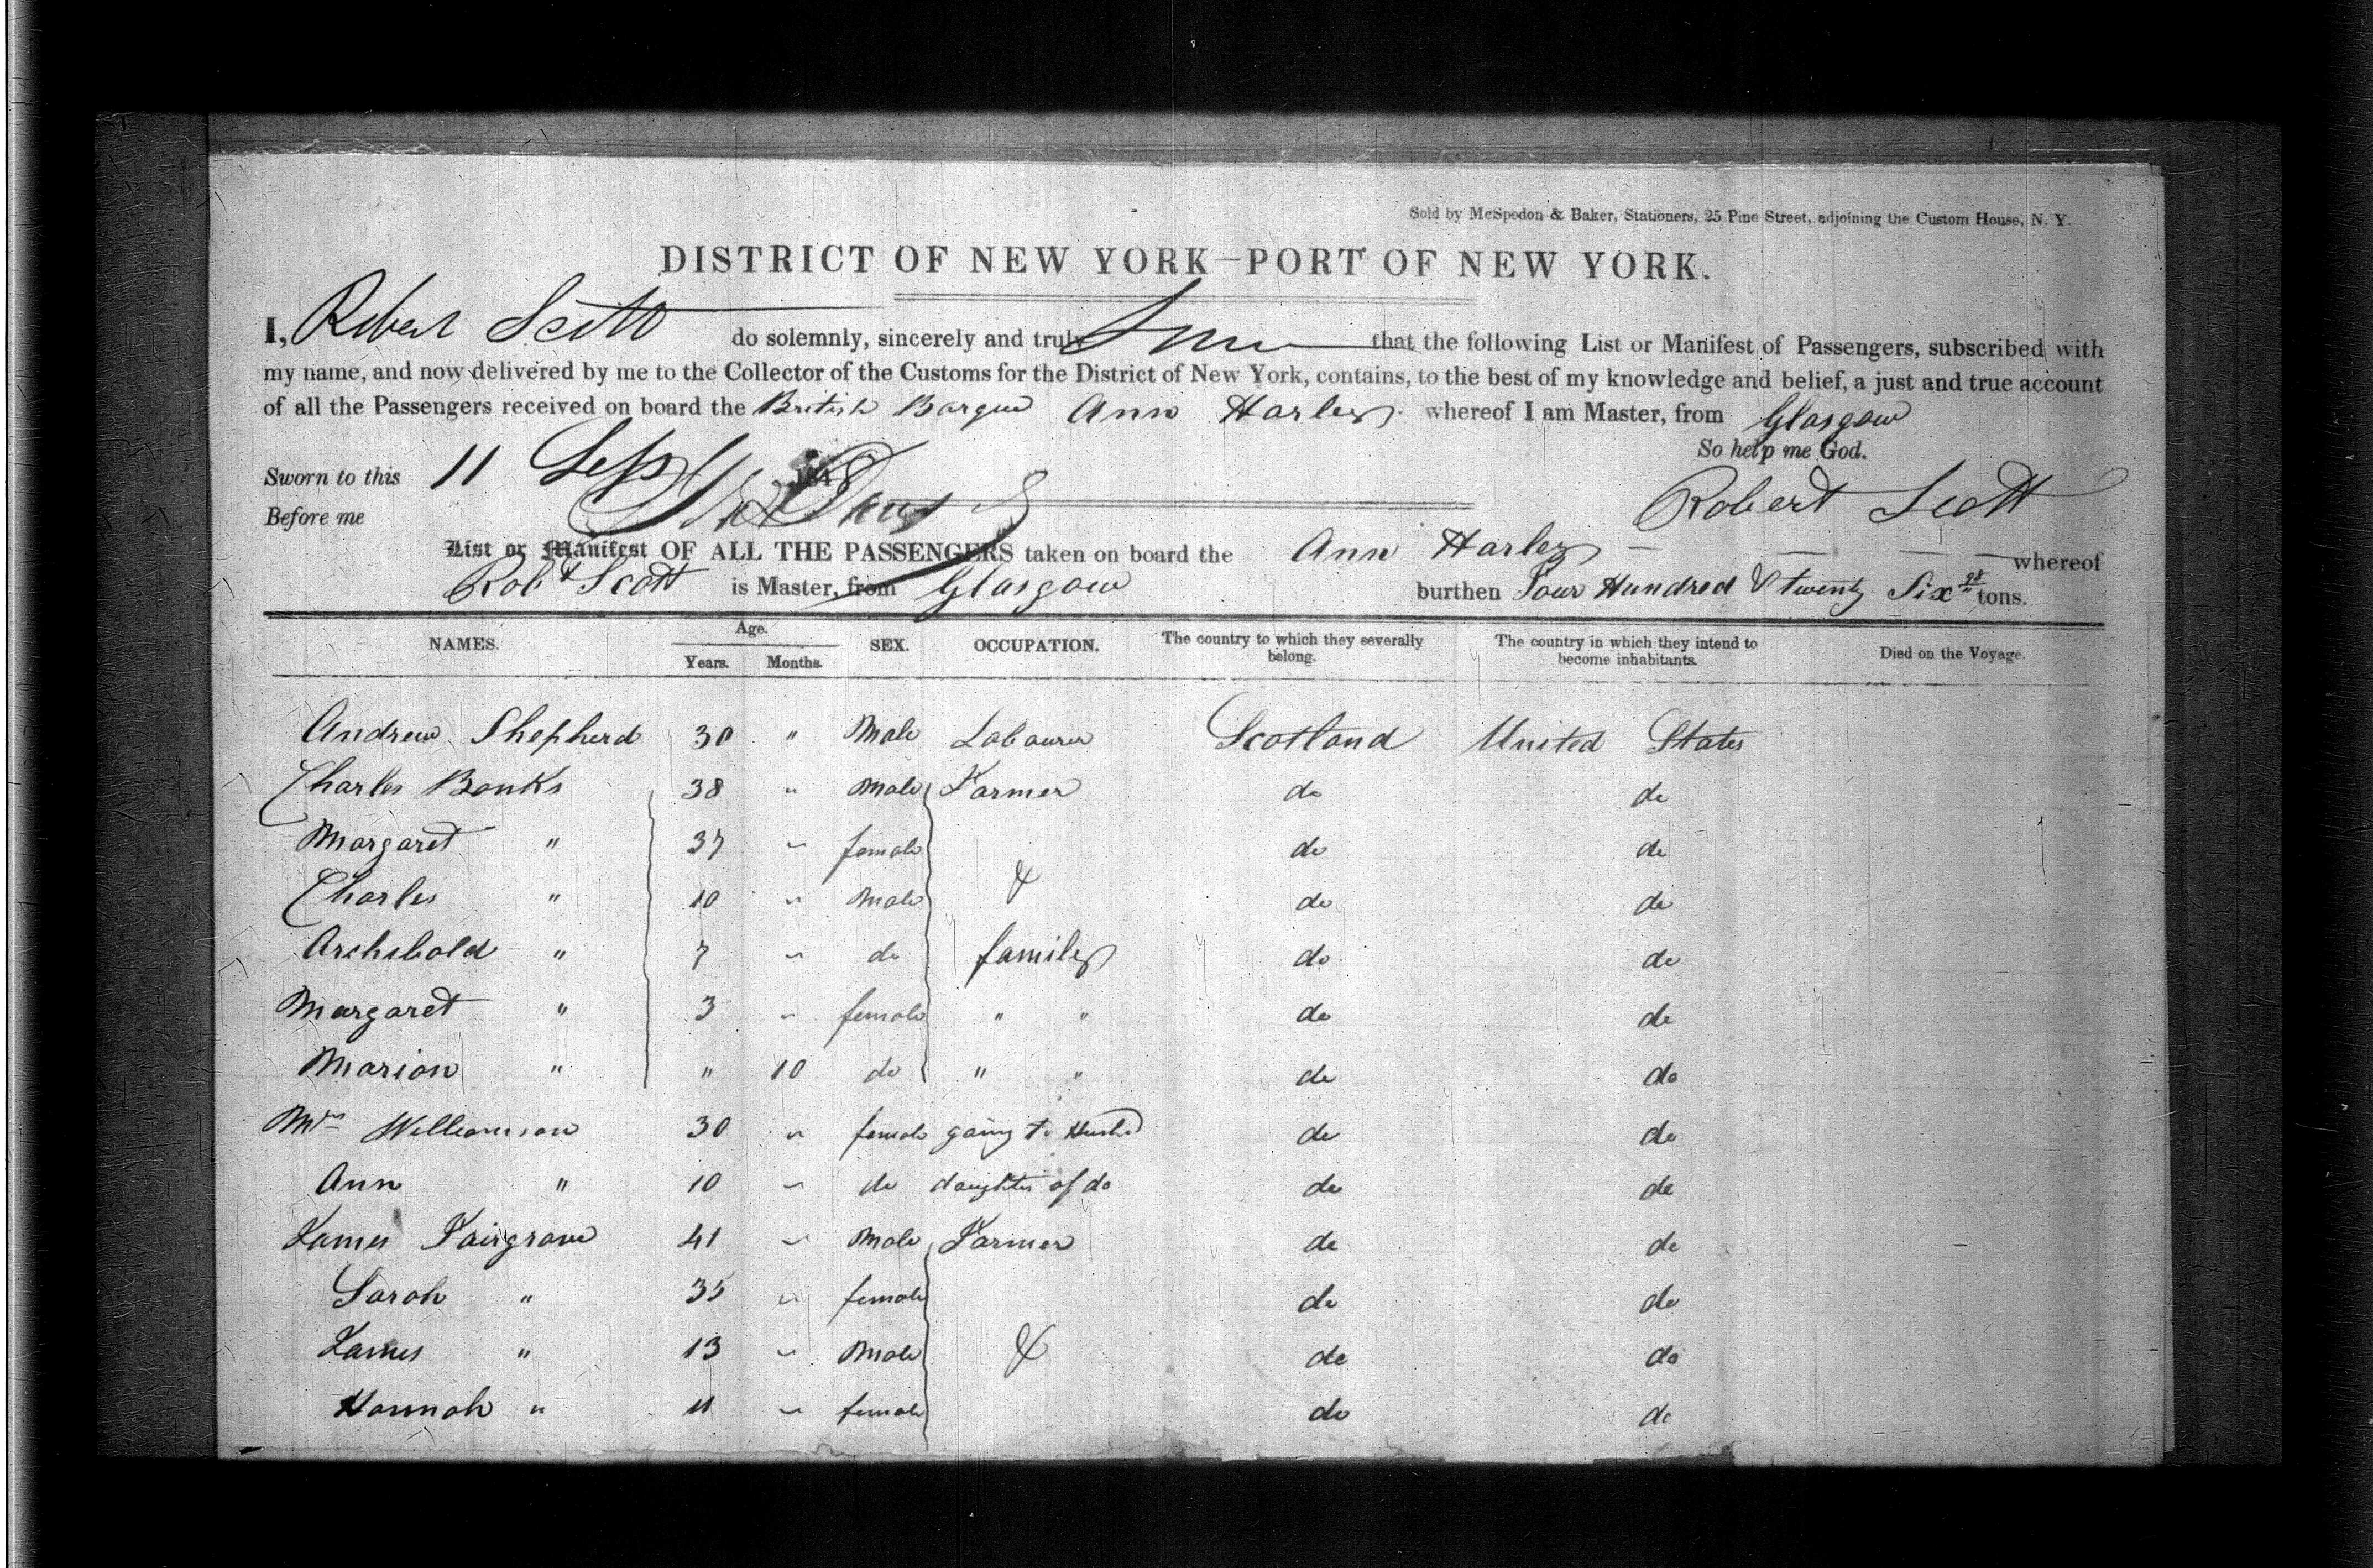 Sold by McSpedon & Baker, Stationers, 25 Pine Street, adjoining the Custom House, N. Y.
DISTRICT OF NEW YORK—PORT OF NEW YORK.
I, Robert Scott do solemnly, sincerely and truly that the following List or Manifest of Passengers, subscribed with
my name, and now delivered by me to the Collector of the Customs for the District of New York, contains, to the best of my knowledge and belief, a just and true account
of all the Passengers received on board the British Barque Ann Harley whereof I am Master, from Glasgow
So help me God.
Sworn to this 11 Sept 1848
Robert Scott
Before me
List or Manifest OF ALL THE PASSENGERS taken on board the Ann Harley whereof
Robt Scott is Master, from Glasgow burthen Four Hundred & twenty Six 98 tons.
NAMES. Age. SEX. OCCUPATION. The country to which they severally belong. The country in which they intend to become inhabitants. Died on the Voyage.
Years. Months.
Andrew Shepherd 30 " Male Labourer Scotland United States
Charles Banks 38 " Male Farmer do do
Margaret " 37 " female do do
Charles " 10 " Male & do do
Archibald " 7 " do family do do
Margaret " 3 " female " " do do
Marion " " 10 do " " do do
Mrs Williamson 30 " female going to Husbd do do
Ann " 10 " do daughter of do do do
James Fairgrave 41 " Male Farmer do do
Sarah " 35 " female do do
James " 13 " Male & do do
Hannah " 11 " female do do